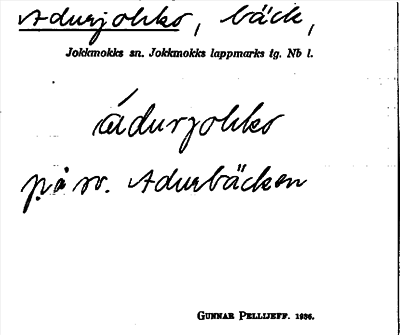 Adurjohko, bäck,
Jokkmokks sn. Jokkmokks lappmarks tg. Nb l.
ádurjohko
på sv. Adurbäcken
GUNNAR PELLIJEFF. 1936.